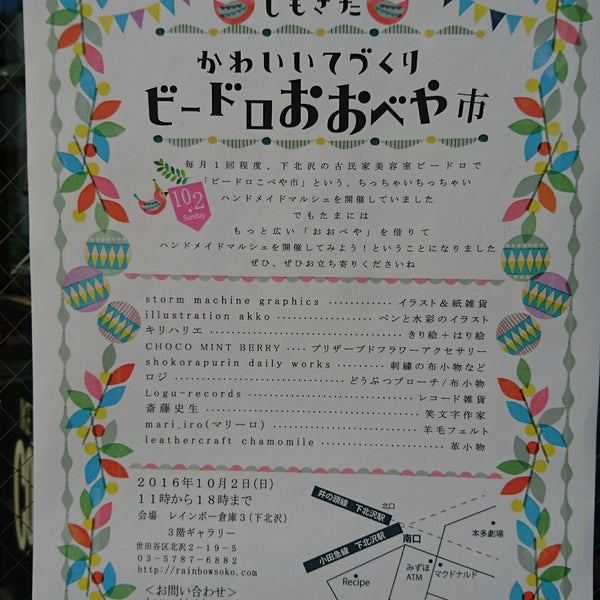 しもきた
かわいいてづくり
ビードロおおべや市
毎月1回程度、下北沢の古民家美容室ビードロで
「ビードロこべや市」という、ちっちゃいちっちゃい
ハンドメイドマルシェを開催していました
でもたまには
もっと広い「おおべや」を借りて
ハンドメイドマルシェを開催してみよう!ということになりました
ぜひ、ぜひお立ち寄りくださいね
10.2
Sunday
storm machine graphics ············ イラスト&紙雑貨
illustration akko ················ ペンと水彩のイラスト
キリハリエ ························ きり絵+はり絵
CHOCO MINT BERRY ···· プリザーブドフラワーアクセサリー
shokorapurin daily works ·········· 刺繍の布小物など
ロジ ···························· どうぶつブローチ/布小物
Logu-records ······················ レコード雑貨
斎藤史生 ·························· 笑文字作家
mari_iro(マリーロ) ·················· 羊毛フェルト
leathercraft chamomile ·············· 革小物
2016年10月2日(日)
11時から18時まで
会場 レインボー倉庫3(下北沢)
3階ギャラリー
世田谷区北沢2-19-5
03-5787-6882
http://rainbowsoko.com
<お問い合わせ>
井の頭線 下北沢駅
北口
小田急線 下北沢駅
南口
本多劇場
みずほ
ATM
マクドナルド
Recipe